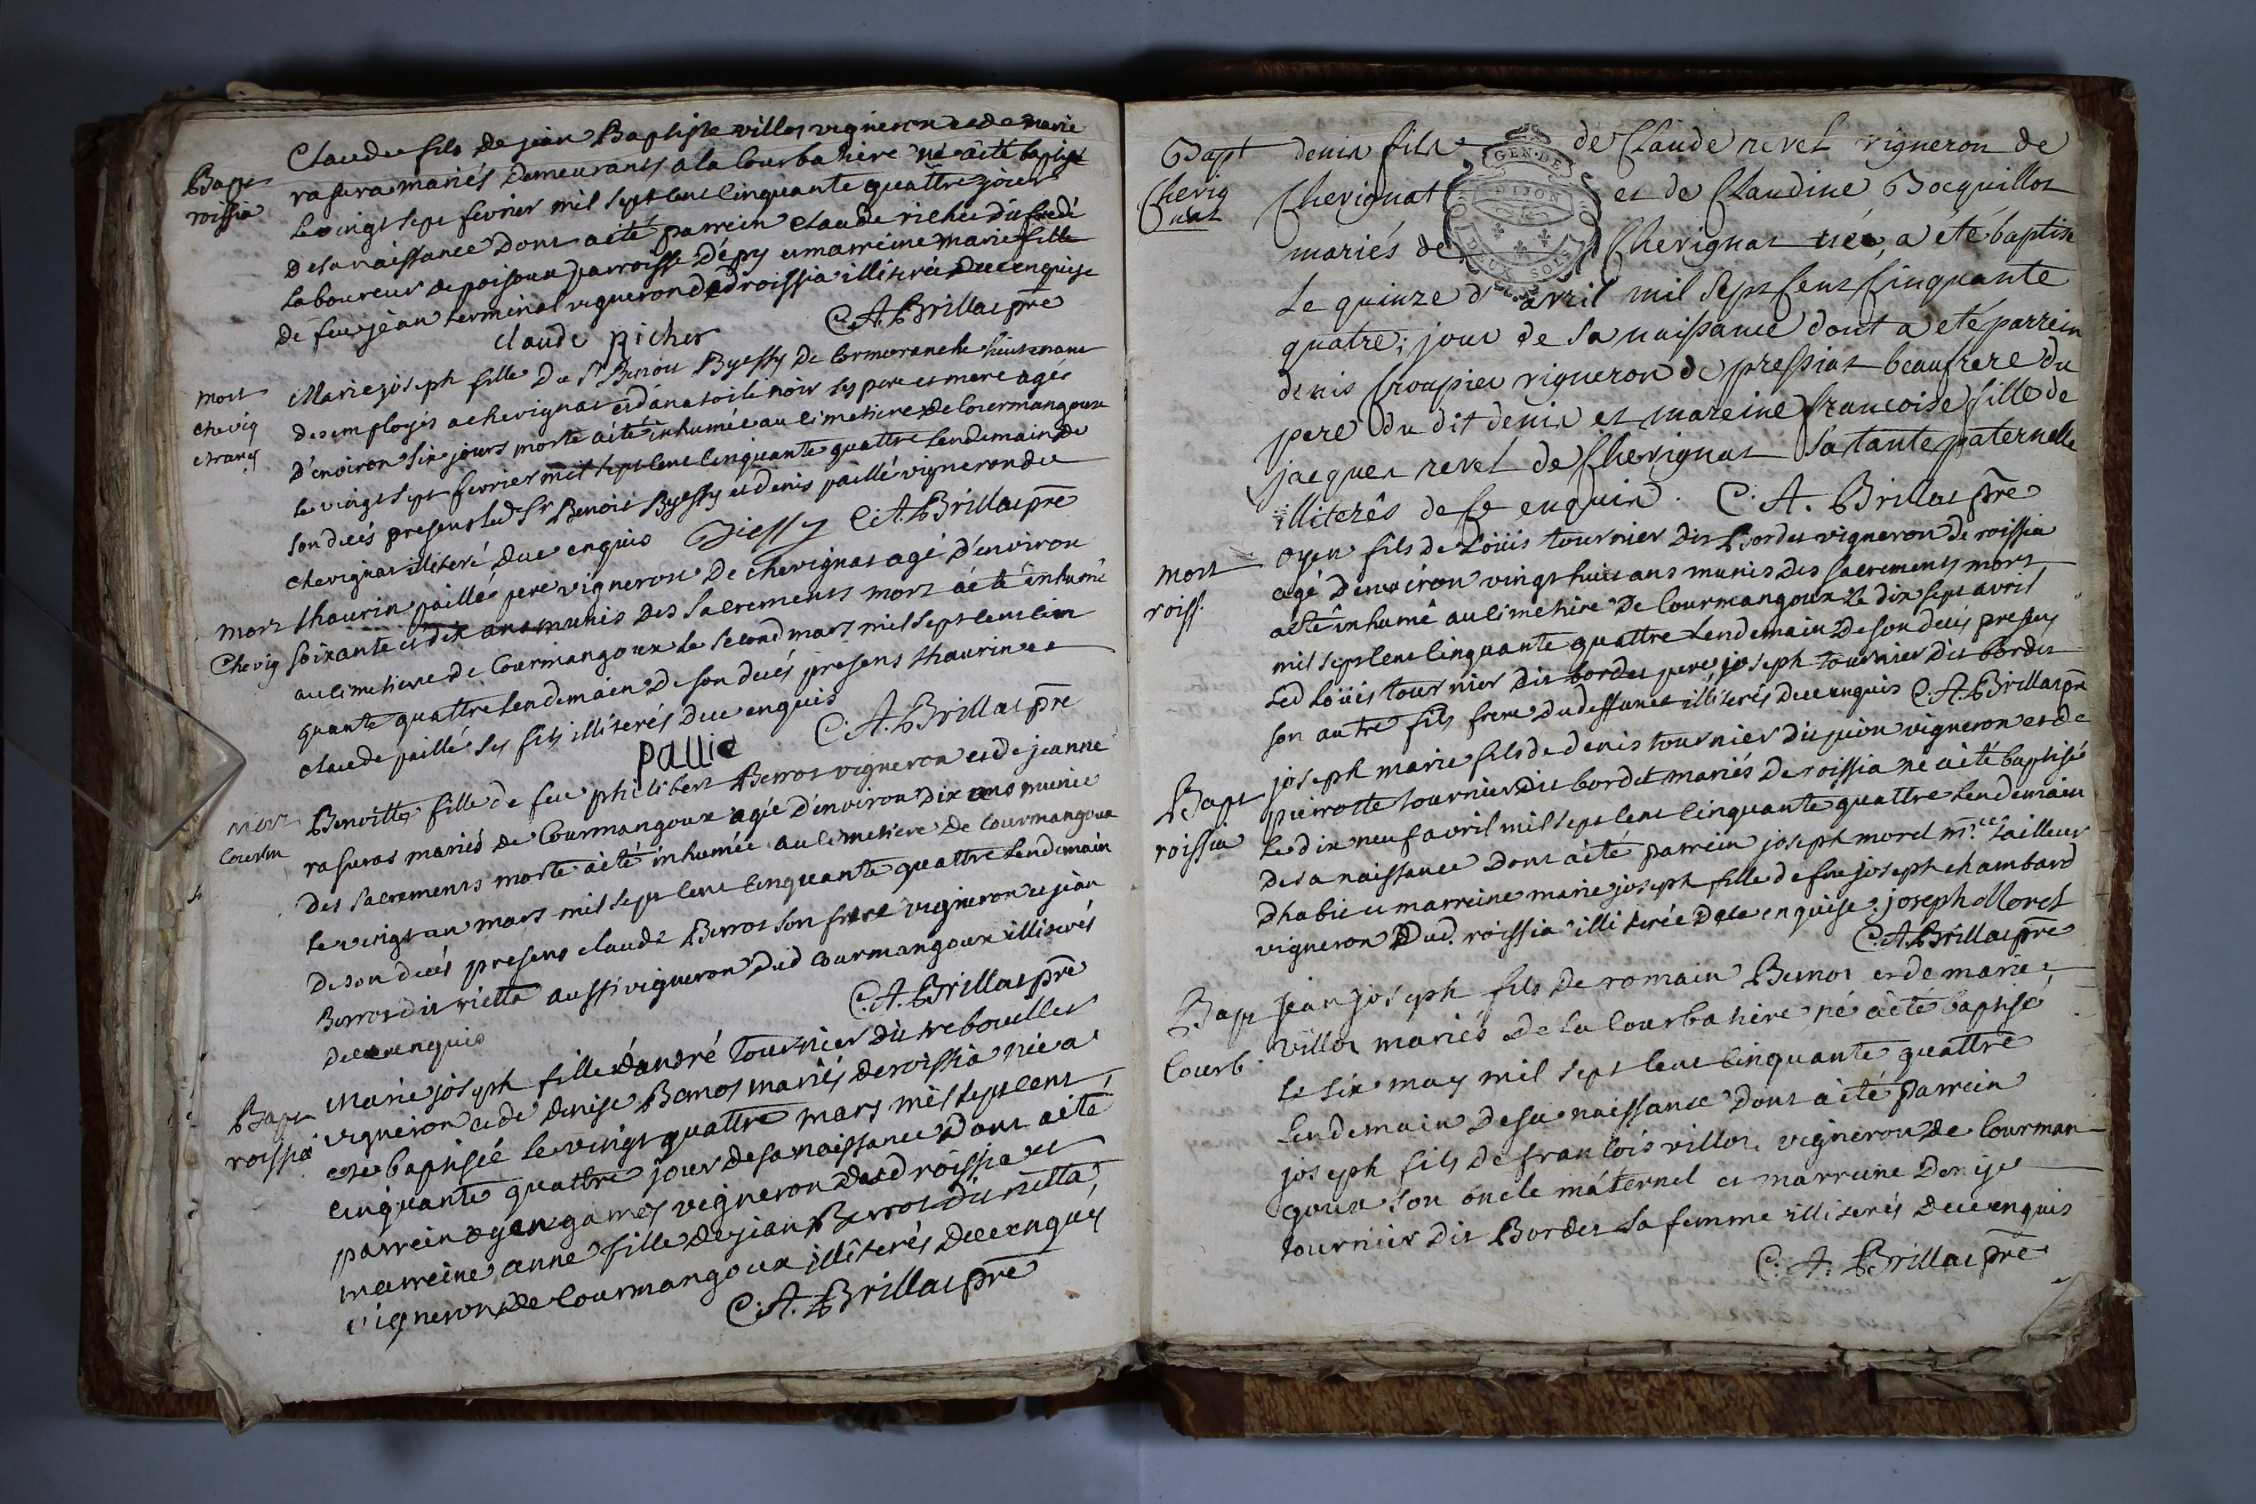 Claude fils de jean Baptiste villot vigneron et de marie
Bapt
roissia
rasura mariés demeurants a la Courbatiere né aété baptisé
le vingt sept fevrier mil sept cent cinquante quattre jour
de sa naissance dont aété parrein Claude
laboureur de poisoux parroisse d'épy et marreine marie fille
de feu jean terminal vigneron dud roissia illiterée de ce enquise
claude picher
C. A. Brillat pre
mort
chevig
etrang
Marie joseph fille du Sr Benoit Byessy de Cormoranche lieutenant
des employés a chevignat et d'ana toile noir ses pere et mere agée
d'environ six jours morte aété inhumée au cimetiere de Courmangoux
le vingt sept fevrier mil sept cent cinquante quattre lendemain de
son decés presens led Sr Benoit Byessy et denis paillé vigneron de
chevignat illiteré de ce enquis
Biessy
C. A. Brillat pre
mort
Chevig
thaurin paillé pere vigneron de chevignat agé d'environ
soixante et dix ans munis des sacrements mort aété inhumé
au cimetiere de Courmangoux le second mars mil sept cent cin
quante quattre lendemain de son decés presens thaurin et
claude paillé ses fils illiterés de ce enquis
pallie
C. A. Brillat pre
mort
Courm
Benoitte fille de feu philibert Berrot vigneron et de jeanne
rasuras mariés de Courmangoux agée d'environ dix ans munie
des sacrements morte aété inhumée au cimetiere de Courmangoux
le vingt un mars mil sept cent cinquante quattre lendemain
de son decés presens claude Berrot son frere vigneron et jean
Berrot dit riette aussi vigneron dud Courmangoux illiterés
de ce enquis
C. A. Brillat pre
Bapt
roissia
Marie joseph fille d'andré tournier dit trebouillet
vigneron et de denise Benos mariés de roissia née a
eté baptisée le vingt quattre mars mil sept cent
cinquante quattre jour de sa naissance dont aété
parrein oyen gamet vigneron dud roissia et
marreine anne fille de jean Berrot dit riette
vigneron de Courmangoux illiterés de ce enquis
C. A. Brillat pre
Bapt
Chevig
nat
denis fils de Claude revel vigneron de
Chevignat et de Claudine Bocquillot
mariés de Chevignat né, a été baptisé
GEN. DE
DIJON
DEUX SOLS
le quinze d'avril mil sept cent cinquante
quatre; jour de sa naissance dont a été parrein
denis croupier vigneron de pressiat beaufrere du
pere du dit denis et mareine francoise fille de
jacques revel de Chevignat sa tante paternelle
illiterés de ce enquis. C. A. Brillat pre
mort
roiss.
oyen fils de Loüis tournier dit Bordet vigneron de roissia
agé d'environ vingt huit ans munis des sacrements mort
aété inhumé au cimetiere de Courmangoux le dix sept avril
mil sept cent cinquante quattre lendemain de son decés presens
led Loüis tournier dit bordet pere, joseph tournier dit bordet
son autre fils frere du deffunct illiterés de ce enquis C. A. Brillat pre
Bapt
roissia
joseph marie fils de denis tournier dit pion vigneron et de
pierrotte tournier dit bordet mariés de roissia né aété baptisé
le dix neuf avril mil sept cent cinquante quattre lendemain
de sa naissance dont aété parrein joseph morel me tailleur
d'habit et marreine marie joseph fille de feu joseph chambard
vigneron dud. roissia illiterée de ce enquise. joseph Morel
C. A. Brillat pre
Bapt
Courb
Jean joseph fils de romain Benos et de marie
villot mariés de la Courbatiere né aété baptisé
le six may mil sept cent cinquante quattre
lendemain de sa naissance dont aété parrein
joseph fils de francois villot vigneron de Courman
goux son oncle maternel et marreine denise
tournier dit Bordet sa femme illiterés de ce enquis
C. A. Brillat pre